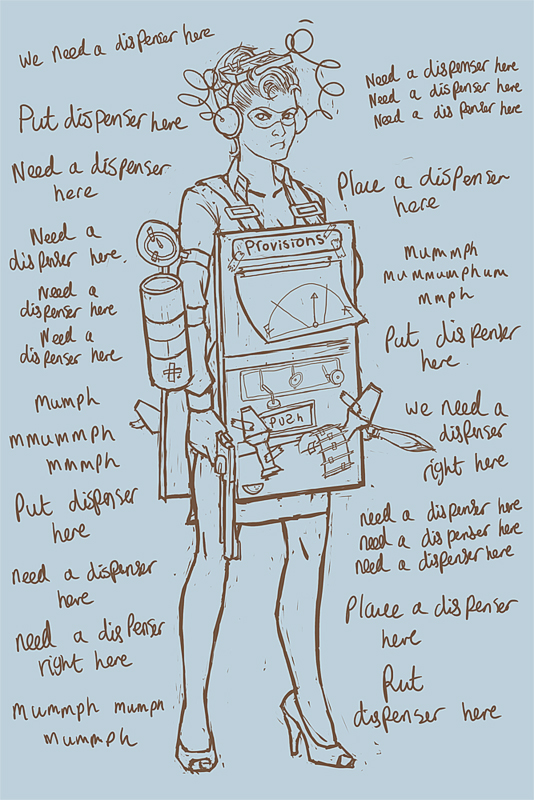 We need a dispenser here
Put dispenser here
Need a dispenser
here
Need a
dispenser here.
Need a
dispenser here
Need a
dispenser here
Mumph
mmummph
mmmph
Put dispenser
here
need a dispenser
here
need a dispenser
right here
Mummph mumph
Mummph
Provisions
PUSH
Need a dispenser here
Need a dispenser here
Need a dispenser here
Place a dispenser
here
Mummph
mummumphum
mmph
Put dispenser
here
We need a
dispenser
right here
need a dispenser here
need a dispenser here
need a dispenser here
Place a dispenser
here
Put
dispenser here